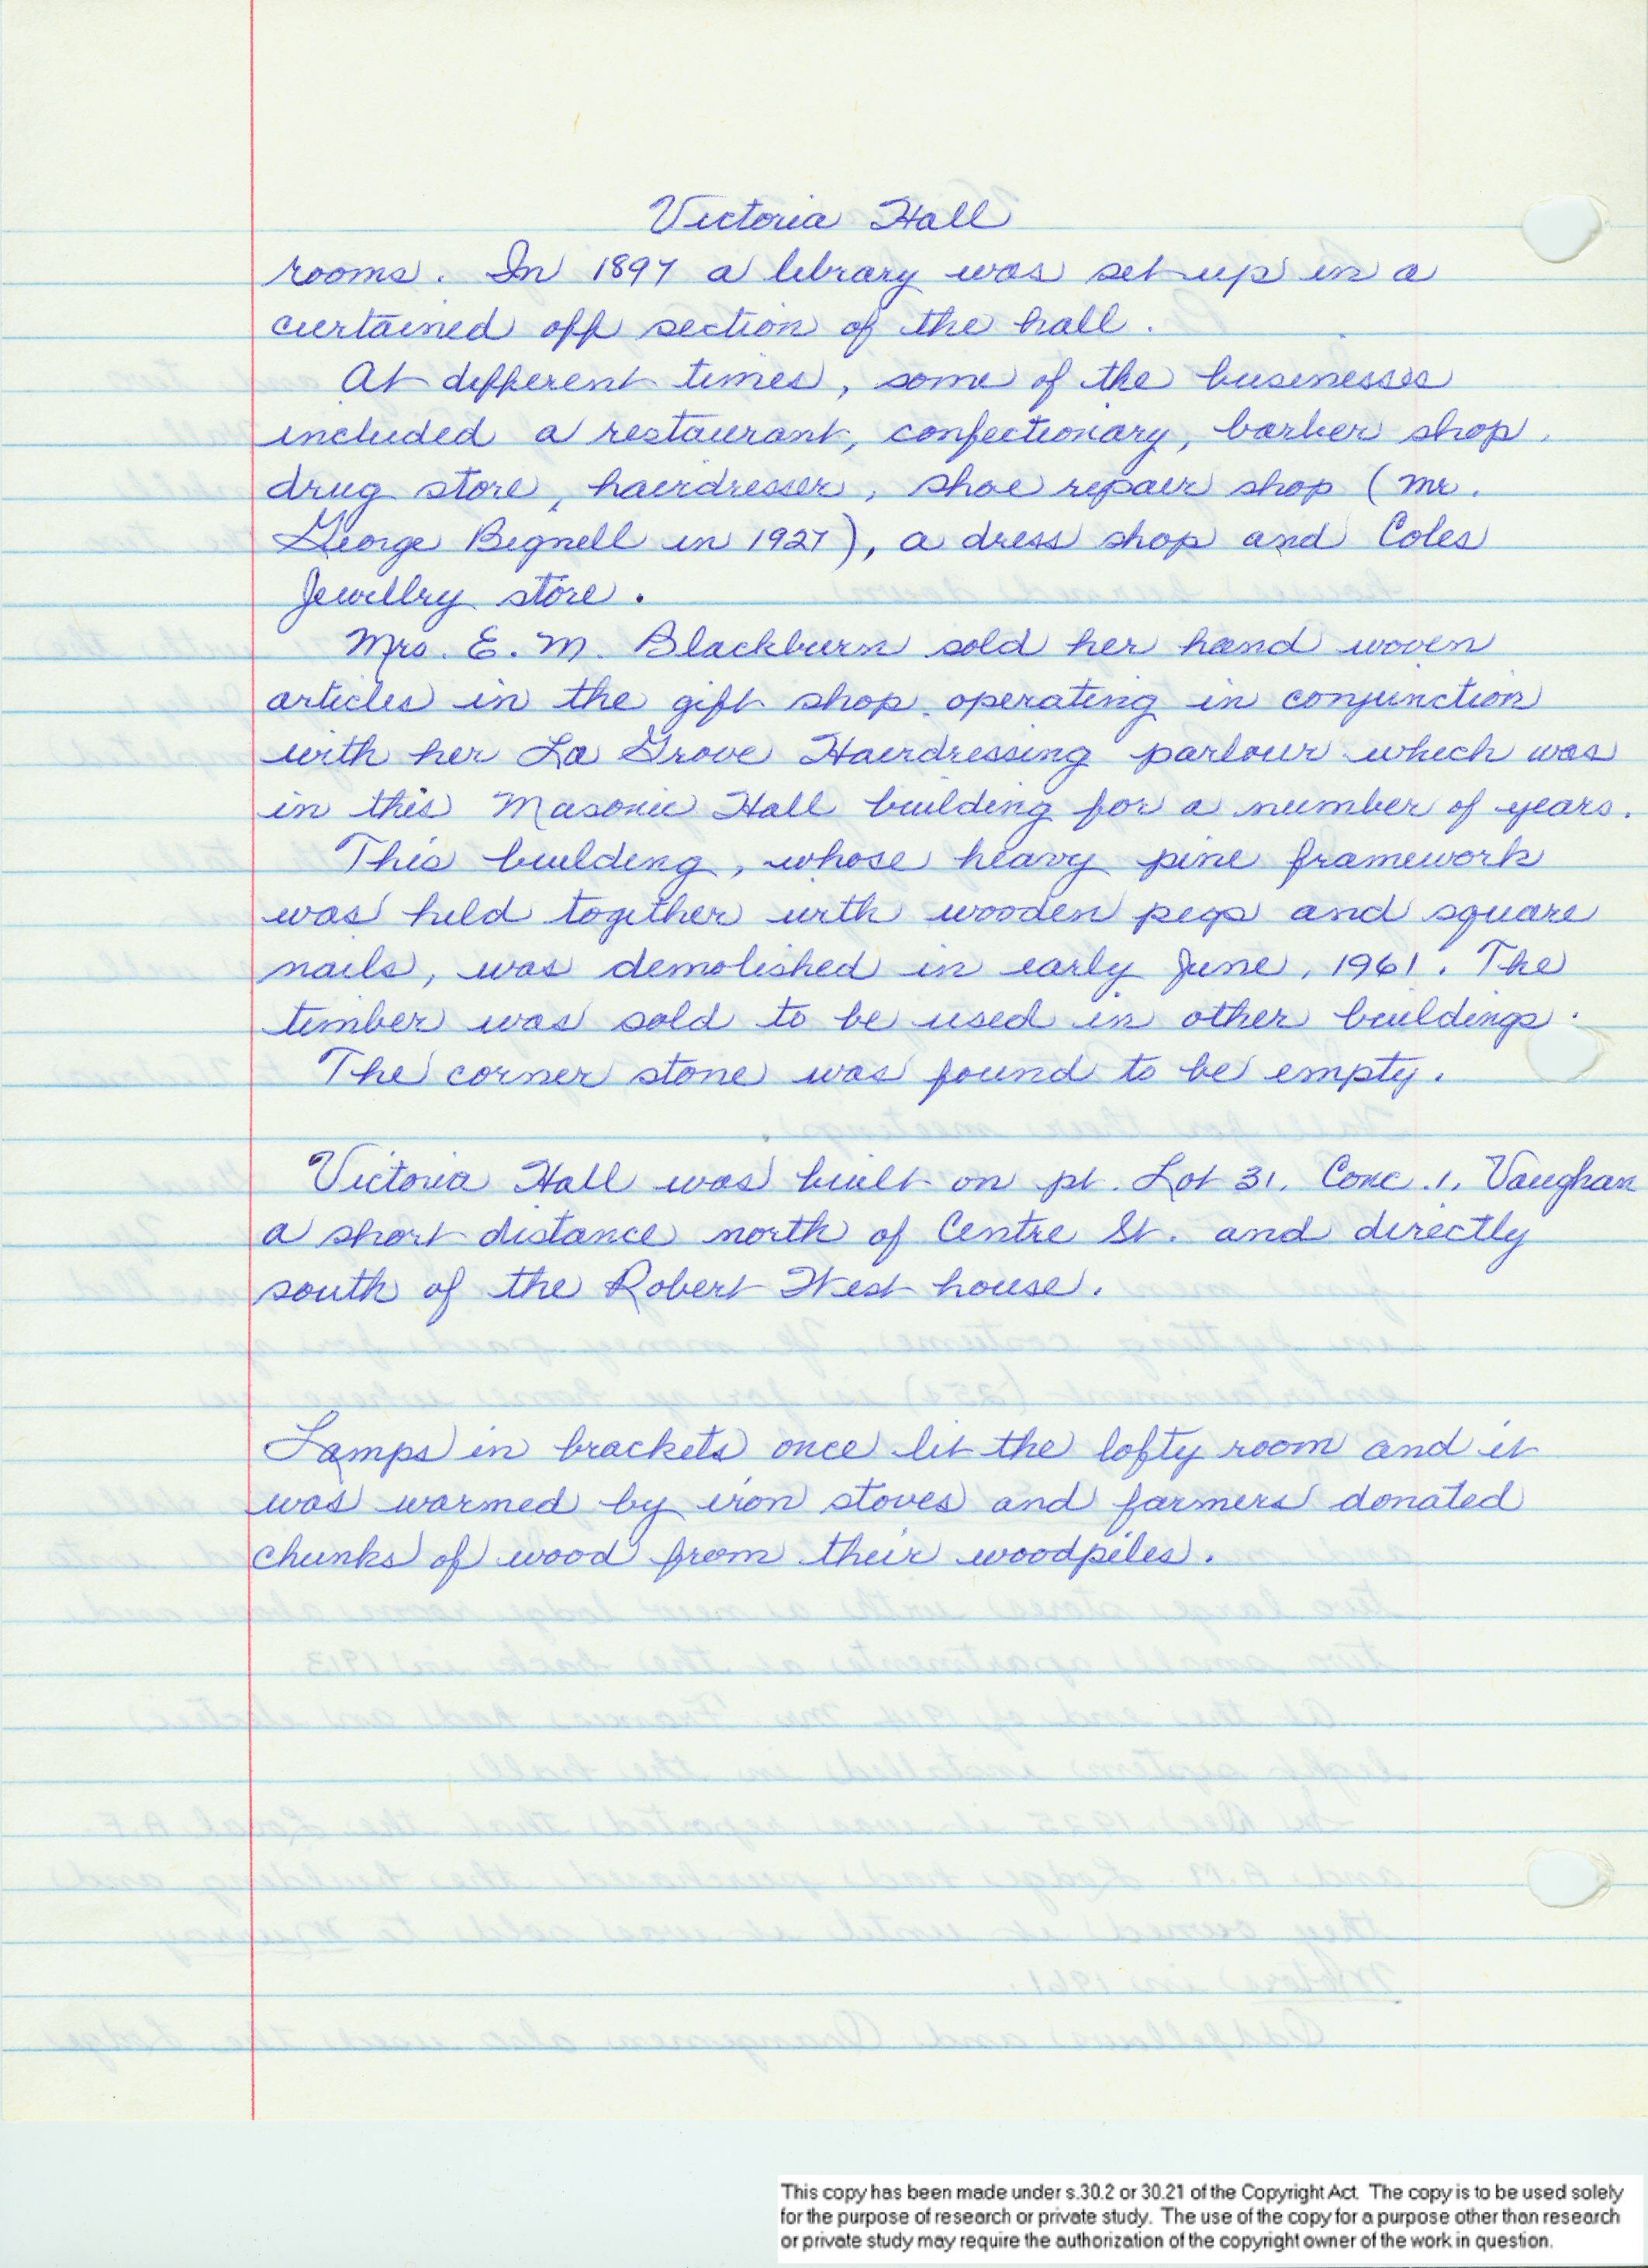 Victoria Hall
rooms. In 1897 a library was set up in a
curtained off section of the hall.
At different times, some of the businesses
included a restaurant, confectionary, barber shop,
drug store, hairdresser, shoe repair shop (Mr.
George Bignell in 1927), a dress shop and Coles
Jewellry store.
Mrs. E. M. Blackburn sold her hand woven
articles in the gift shop operating in conjunction
with her La Grove Hairdressing parlour which was
in this Masonic Hall building for a number of years.
This building, whose heavy pine framework
was held together with wooden pegs and square
nails, was demolished in early June, 1961. The
timber was sold to be used in other buildings.
The corner stone was found to be empty.
Victoria Hall was built on pt. Lot 31, Conc. 1, Vaughan
a short distance north of Centre St. and directly
south of the Robert West house.
Lamps in brackets once lit the lofty room and it
was warmed by iron stoves and farmers donated
chunks of wood from their woodpiles.
This copy has been made under s.30.2 or 30.21 of the Copyright Act. The copy is to be used solely
for the purpose of research or private study. The use of the copy for a purpose other than research
or private study may require the authorization of the copyright owner of the work in question.